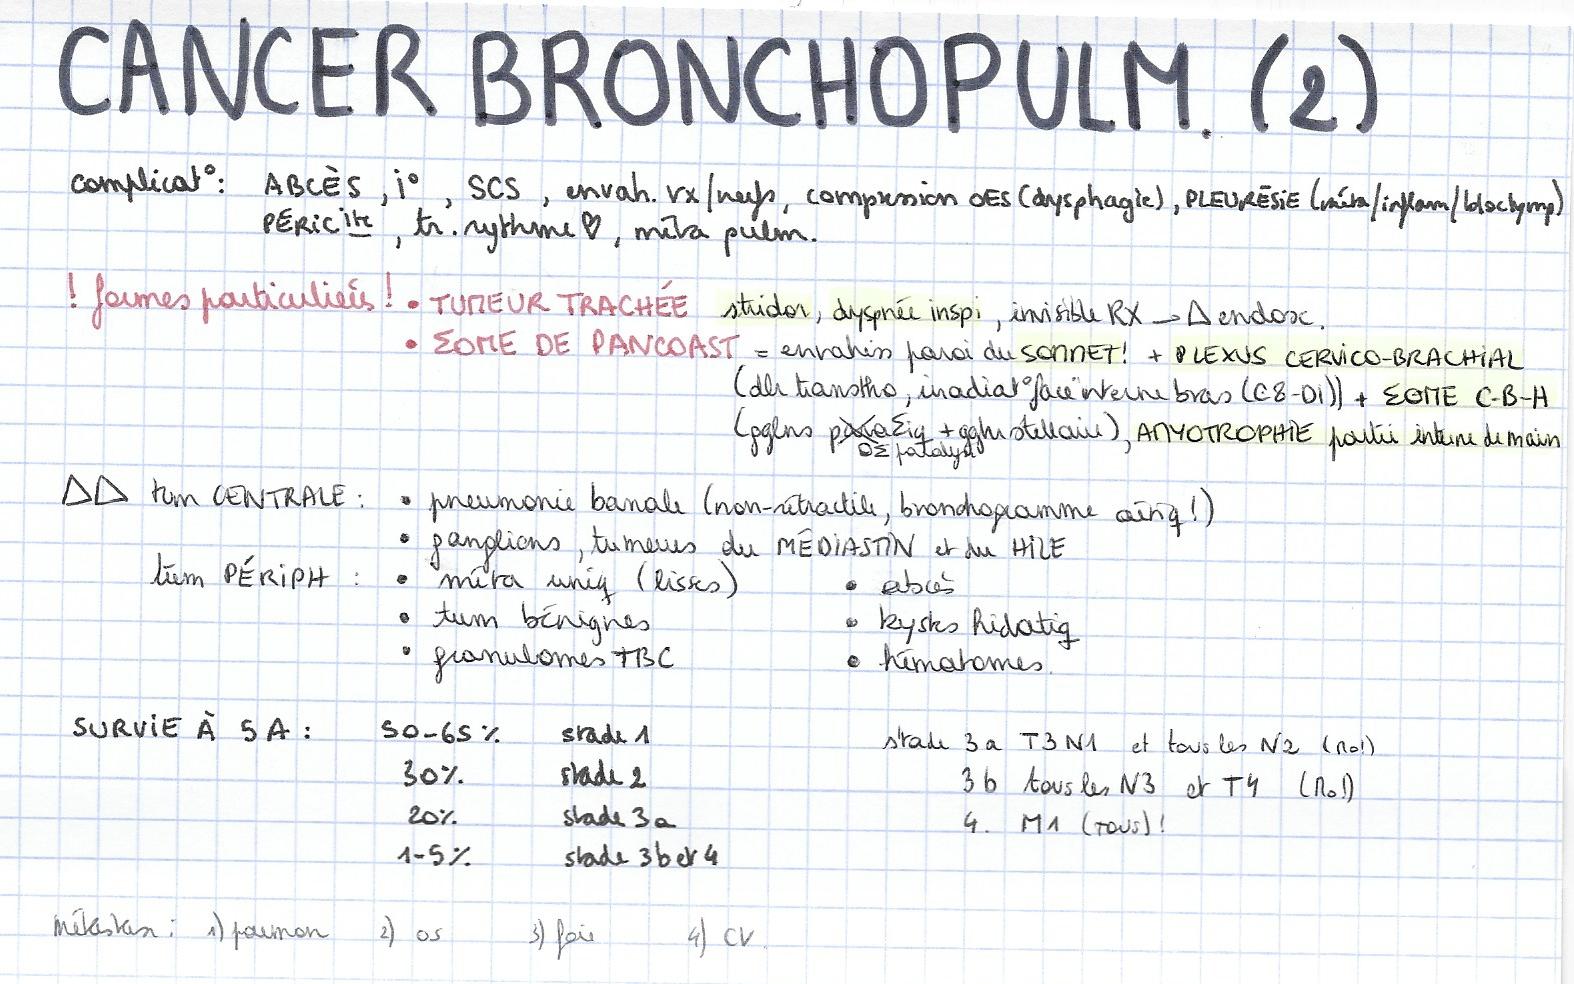 CANCER BRONCHOPULM. (2)
complicat°: ABCÈS, i°, SCS, envah. vx/nerfs, compression OES (dysphagie), PLEURÉSIE (méta/inflam/bloc lymp)
PÉRICite, tr. rythme ♡, méta pulm.
! formes particulières ! • TUMEUR TRACHÉE stridor, dyspnée inspi, invisible RX → Δ endosc.
• ΣOME DE PANCOAST = envahis paroi du SOMMET! + PLEXUS CERVICO-BRACHIAL
(dlr transtho, irradiat° face interne bras (C8-D1)) + ΣOME C-B-H
(pglns + ggln stellaire), AMYOTROPHIE partie interne de main
OΣ paralysé
ΔΔ tum CENTRALE: • pneumonie banale (non-rétractile, bronchogramme aériq!)
• ganglions, tumeurs du MÉDIASTIN et du HILE
tum PÉRIPH: • méta uniq (lisses) • abcès
• tum bénignes • kystes hidatiq
• granulomes TBC • hématomes.
SURVIE À 5A: 50-65% stade 1 stade 3a T3N1 et tous les N2 (M0!)
30% stade 2 3b tous les N3 et T4 (M0!)
20% stade 3a 4. M1 (tous)!
1-5% stade 3b et 4
Métastas: 1) poumon 2) os 3) foie 4) CV